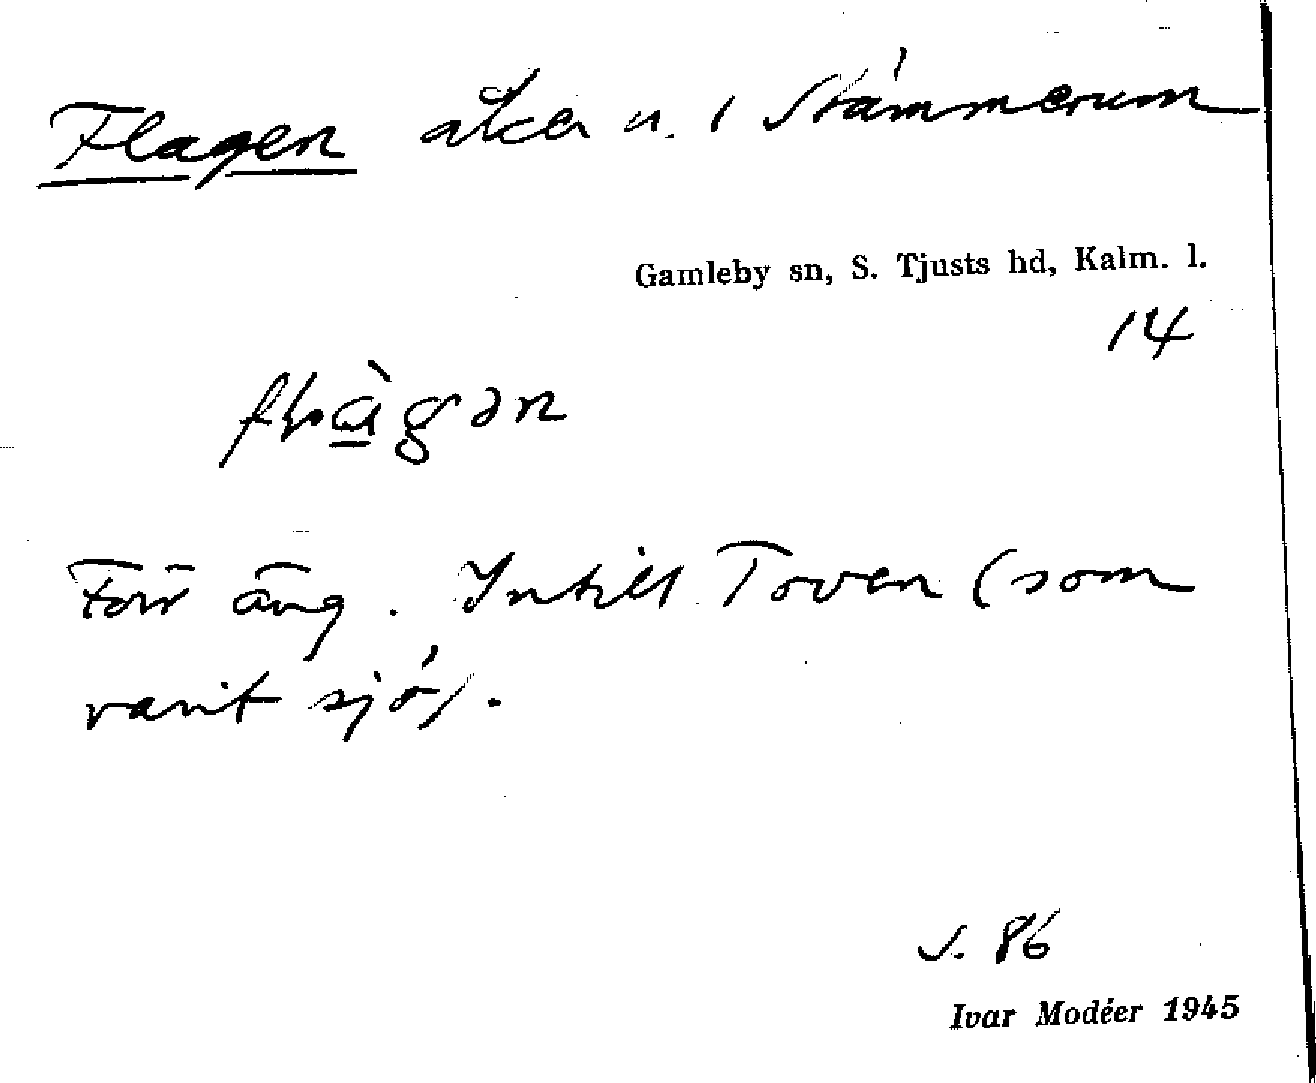 Flagen åker n. i Stämmerum
Gamleby sn, S. Tjusts hd, Kalm. l.
14
Förr äng. Intill Toven (som
varit sjö).
S. 86
Ivar Modéer 1945